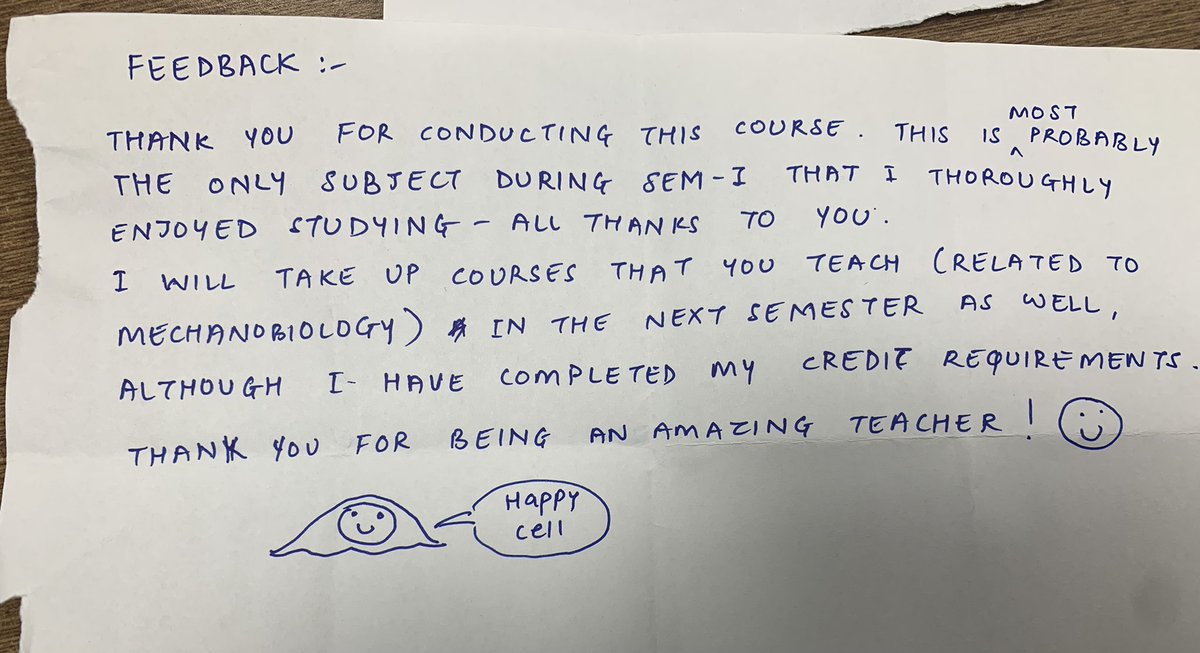 FEEDBACK :-
THANK YOU FOR CONDUCTING THIS COURSE. THIS IS ^MOST PROBABLY
THE ONLY SUBJECT DURING SEM-I THAT I THOROUGHLY
ENJOYED STUDYING - ALL THANKS TO YOU.
I WILL TAKE UP COURSES THAT YOU TEACH (RELATED TO
MECHANOBIOLOGY) IN THE NEXT SEMESTER AS WELL,
ALTHOUGH I HAVE COMPLETED MY CREDIT REQUIREMENTS.
THANK YOU FOR BEING AN AMAZING TEACHER!
HAPPY
cell